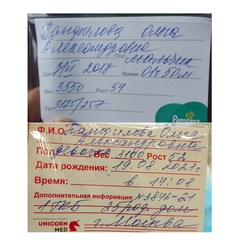 Панфилова Ольга
Александровна
Пол мальчик
Дата 3/VI 2017 Время 01ч 50м
Вес 3550 Рост 54
3125/257
Pampers
Ф.И.О. Панфилова Ольга
Александровна
Пол девочка Вес 3100 Рост 52
Дата рождения: 19.08.2021г
Время: в 14:08
Дополнительная информация: №3846-21
25 род. дом
UNICORN г. Москва
MED